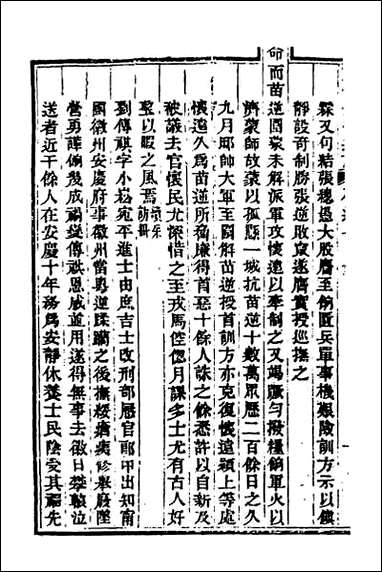 霖又句結張總愚大股麕至餉匱兵單事機艱險訓方示以鎮
靜設奇制勝張逆敗竄遂膺實授巡撫之
命而苗
逆圍蒙未解派軍攻懷遠以牽制之又竭蹶勻撥糧餉軍火以
濟蒙師故蒙以孤懸一城抗苗逆十數萬眾歷二百餘日之久
九月邱帥大軍至圍解苗逆授首訓方亦克復懷遠潁上等處
懷遠久為苗逆所窟廉得首惡十餘人誅之餘悉許以自新及
被議去官懷民尤深惜之至戎馬倥傯月課多士尤有古人好
整以暇之風焉
劉傳祺字小崧宛平進士由庶吉士改刑部歷官郎中出知南
國徽州安慶府事徽州當粵逆蹂躪之後撫綏瘡痍修舉廢墜
營勇譁餉幾成禍變傳祺恩威並用遂得無事去徽日攀轅泣
送者近千餘人在安慶十年務為安靜休養士民陰受其福先